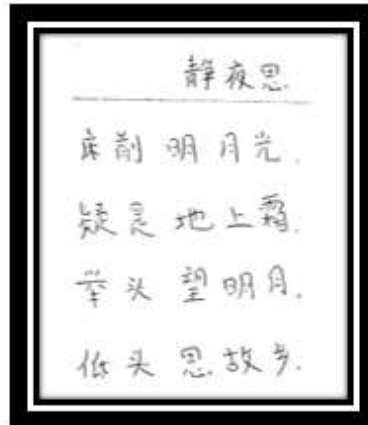 静夜思
床前明月光.
疑是地上霜.
举头望明月.
低头思故乡.